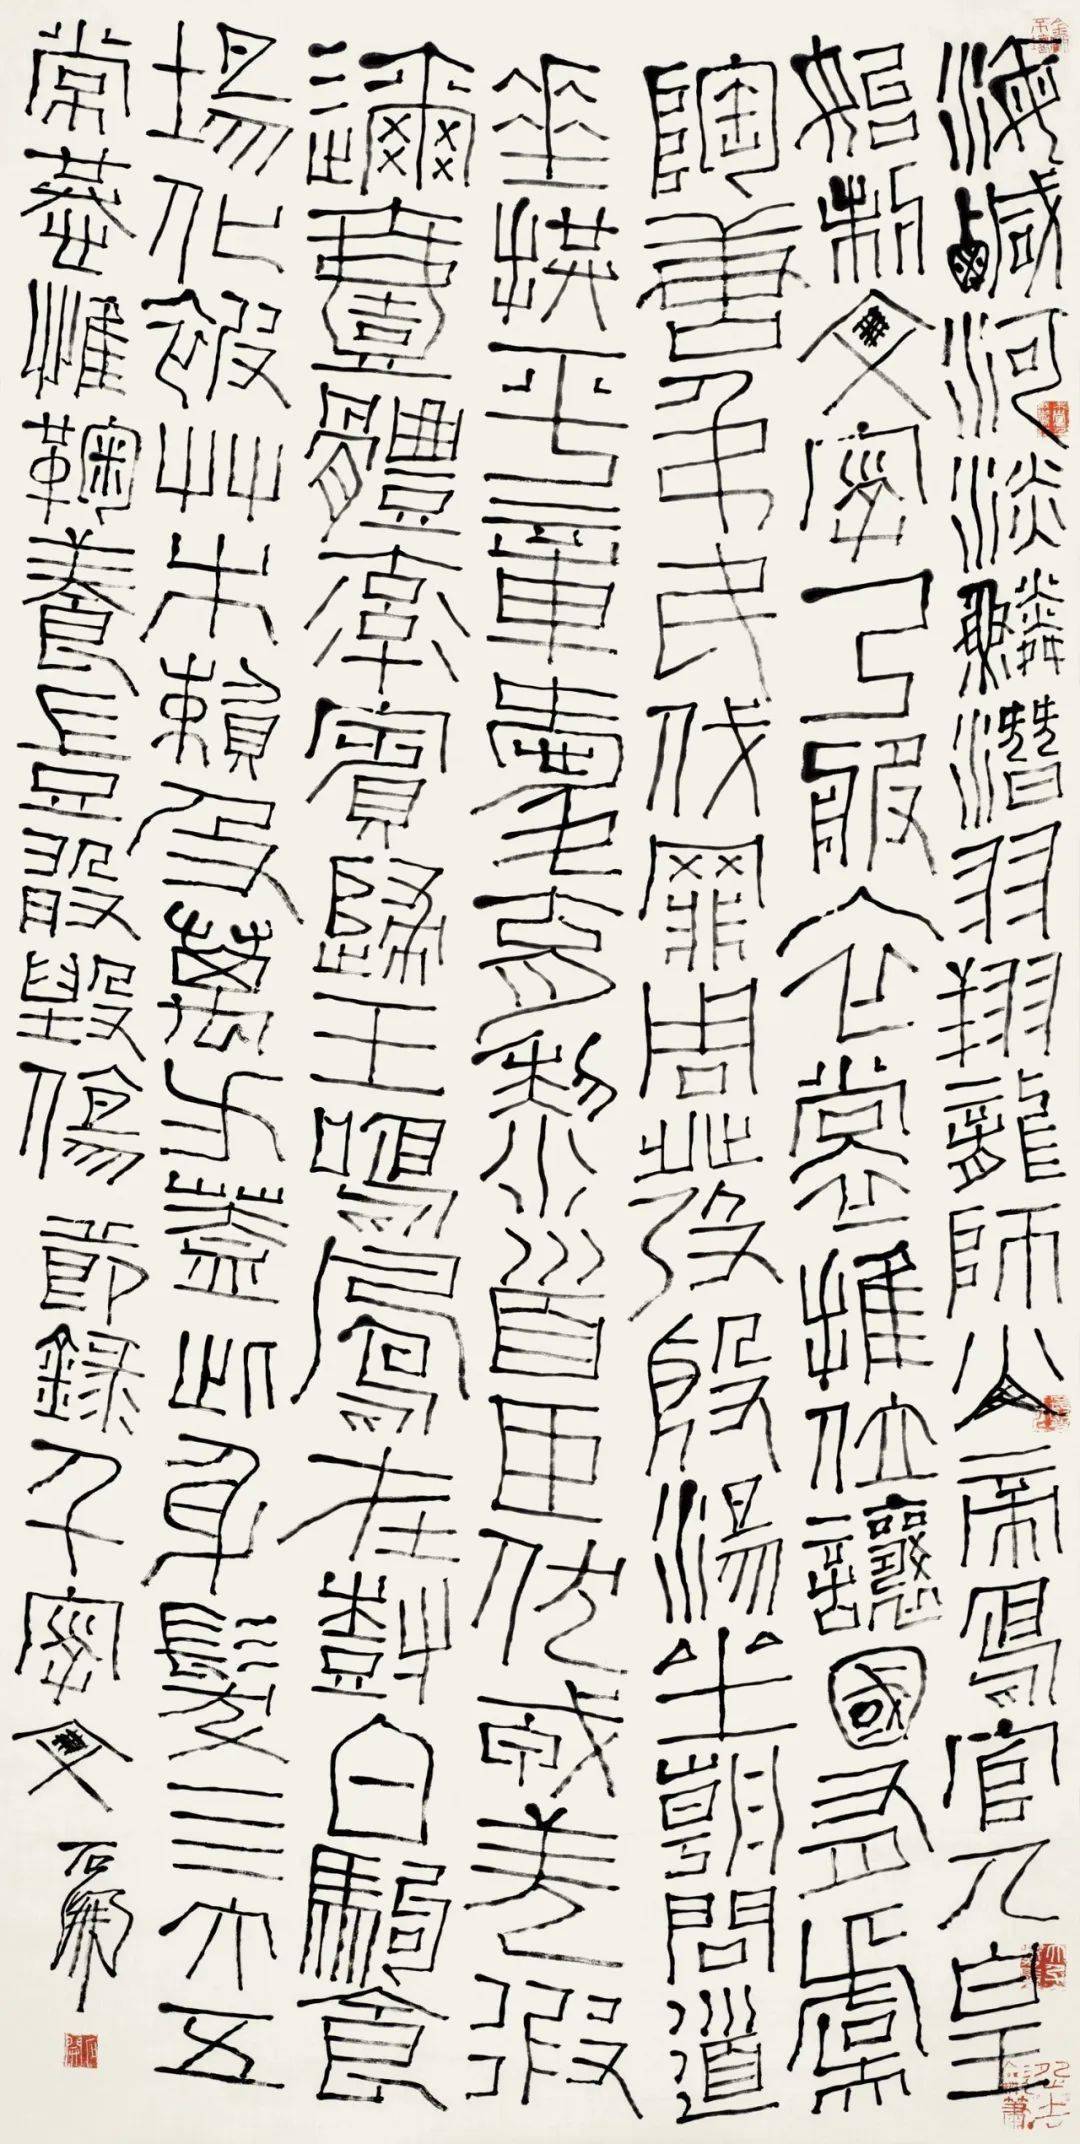 海鹹河淡鱗潛羽翔龍師火帝鳥官人皇
始制文字乃服衣裳推位讓國有虞
陶唐弔民伐罪周發殷湯坐朝問道
垂拱平章愛育黎首臣伏戎羌遐
邇壹體率賓歸王鳴鳳在樹白駒食
場化被草木賴及萬方蓋此身髮四大五
常恭惟鞠養豈敢毀傷 節錄千字文 石開